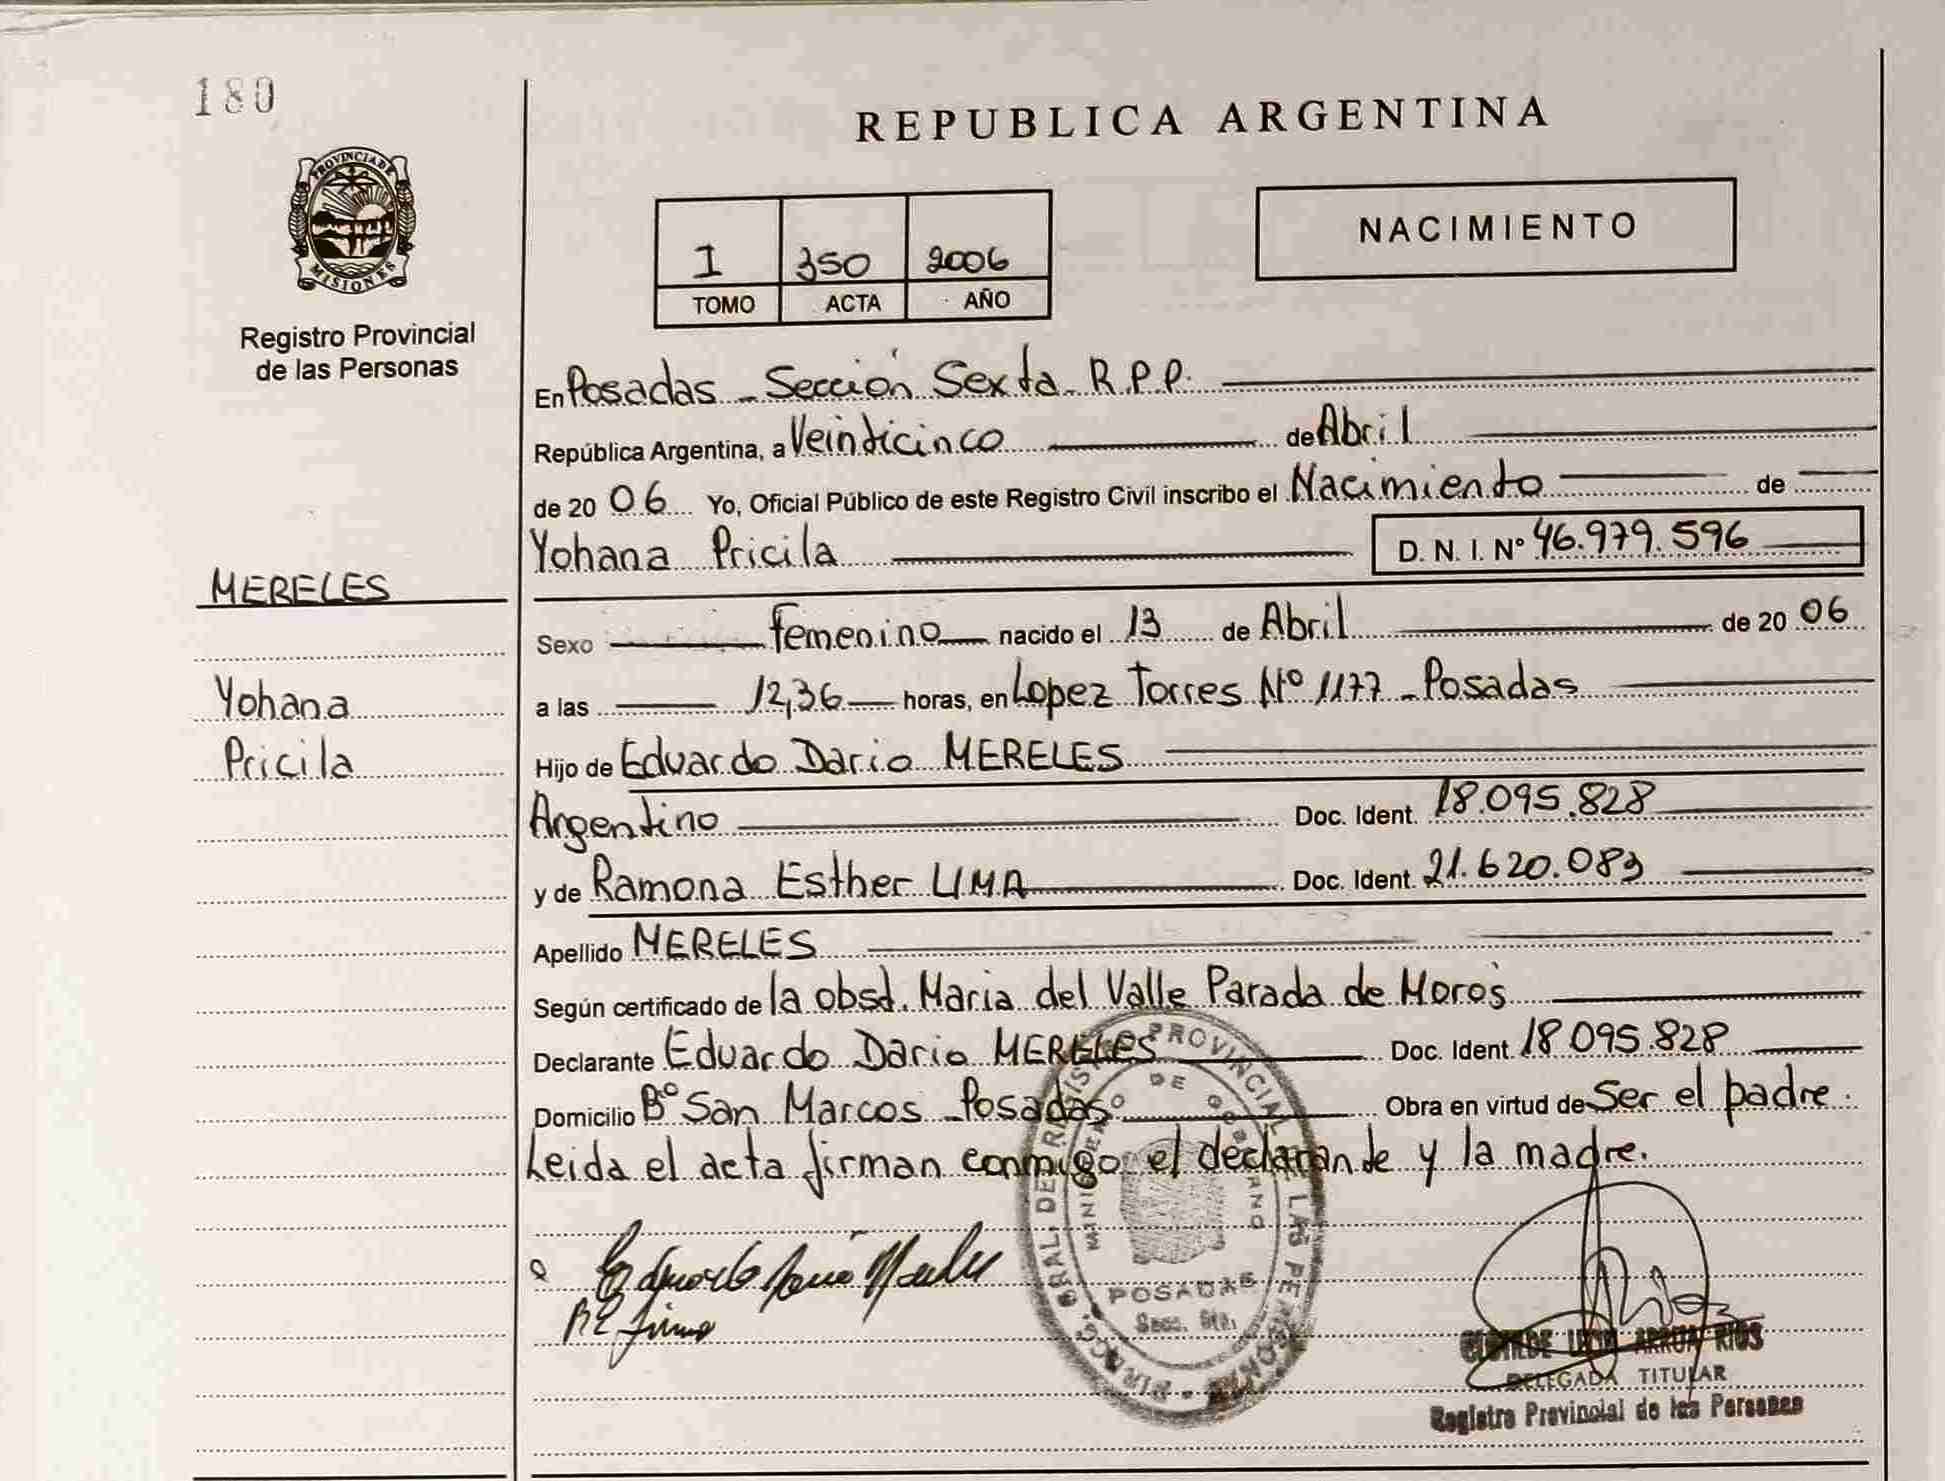 180
PROVINCIA DE
MISIONES
Registro Provincial
de las Personas
MERELES
Yohana
Pricila
REPUBLICA ARGENTINA
I 350 2006
TOMO ACTA AÑO
NACIMIENTO
En Posadas - Sección Sexta - R.P.P.
República Argentina, a Veinticinco de Abril
de 20 06 Yo, Oficial Público de este Registro Civil inscribo el Nacimiento de
Yohana Pricila D. N. I. Nº 46.979.596
Sexo Femenino nacido el 13 de Abril de 20 06
a las 12,36 horas, en Lopez Torres Nº 1177 - Posadas
Hijo de Eduardo Dario MERELES
Argentino Doc. Ident. 18.095.828
y de Ramona Esther LIMA Doc. Ident. 21.620.083
Apellido MERELES
Según certificado de la obst. Maria del Valle Parada de Moros
Declarante Eduardo Dario MERELES Doc. Ident. 18.095.828
Domicilio Bº San Marcos - Posadas Obra en virtud de Ser el padre.
Leida el acta firman conmigo el declarante y la madre.
GRAL. DE REGISTRO PROVINCIAL DE LAS PERSONAS
MINISTERIO DE GOBIERNO
POSADAS
Secc. 6ta.
Eduardo Dario Mereles
RE Lima
ARRUA RIOS
DELEGADA TITULAR
Registro Provincial de las Personas